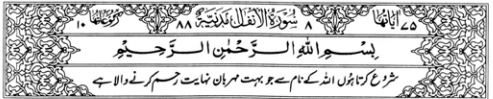 آیاتها ۷۵ ۸ سُوْرَةُ الْاَنْفَالِ مَدَنِیَّةٌ ۸۸ رکوعاتها ۱۰
بِسْمِ اللّٰهِ الرَّحْمٰنِ الرَّحِیْمِ
شروع کرتا ہوں اللہ کے نام سے جو بہت مہربان نہایت رحم کرنے والا ہے